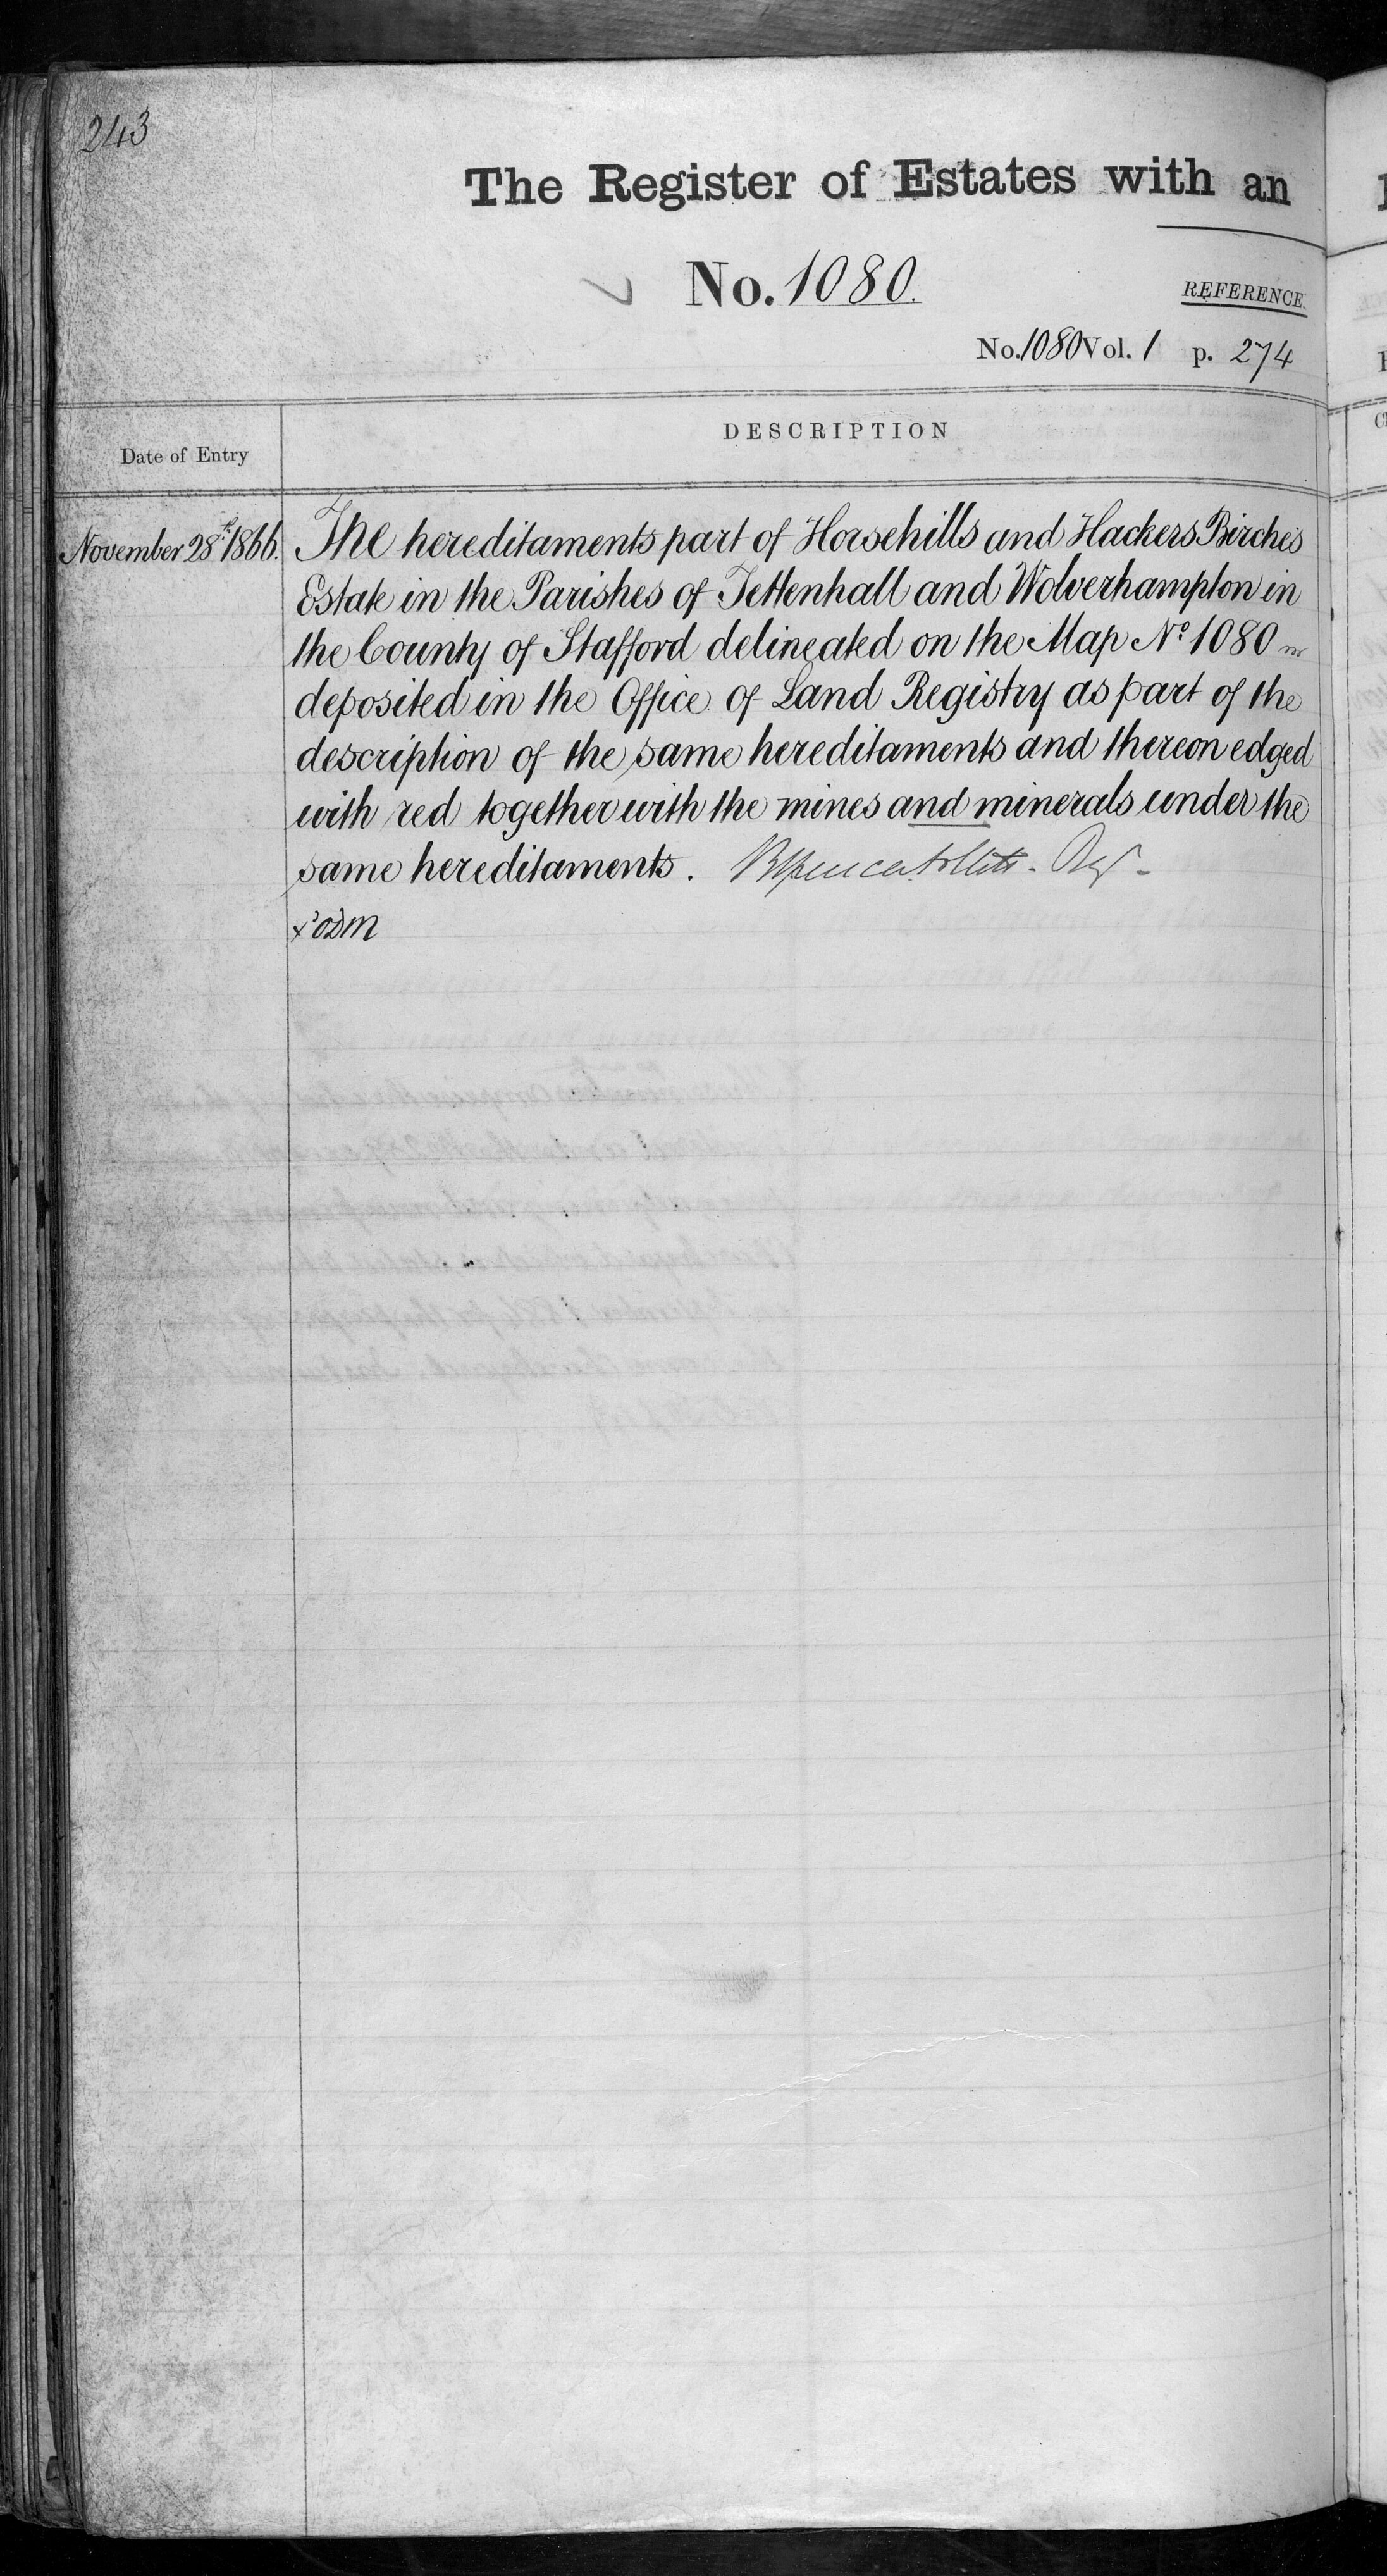 243
The Register of Estates with an
No. 1080.
REFERENCE.
No. 1080 Vol. 1 p. 274
DESCRIPTION
Date of Entry
November 28th 1866. The hereditaments part of Horsehills and Hackers Birches
Estate in the Parishes of Tettenhall and Wolverhampton in
the County of Stafford delineated on the Map No 1080
deposited in the Office of Land Registry as part of the
description of the same hereditaments and thereon edged
with red together with the mines and minerals under the
same hereditaments. Reg